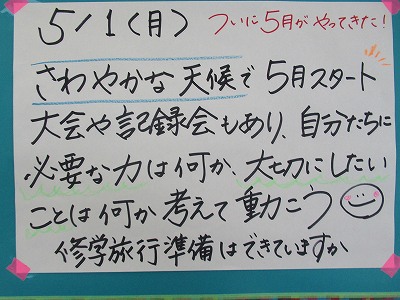 5/1(月) ついに5月がやってきた!
さわやかな天候で5月スタート
大会や記録会もあり、自分たちに
必要な力は何か、大切にしたい
ことは何か考えて動こう
修学旅行準備はできていますか